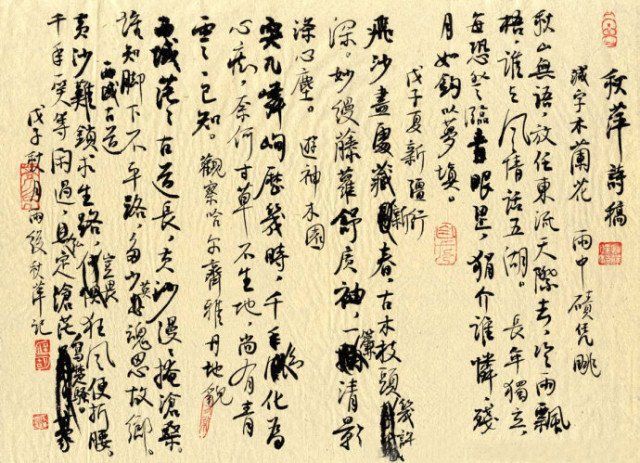 秋萍詩稿
減字木蘭花 雨中磧凭眺
秋山無語,放任東流天際去,冷雨飄
梧,誰与風情話五湖。長年獨立,
每恐登臨青眼星,狷介誰憐,殘
月如鈎以夢填。
戊子夏新疆行
飛沙盡處藏新春,古木枝頭幾許
深。妙縵藤蘿舒廣袖,一簾清影
滌心塵。遊神木園
突兀嶙峋歷幾時,千年幻化為
心痴,奈何寸草不生地,尚有青
雲已知。觀察哈尔齊雅丹地貌
西域茫茫古道長,黃沙漫漫掩滄桑。
誰知脚下不平路,多少英魂思故鄉。
西域古道
黃沙難鎖求生路,豈畏狂風便折腰,
千年一笑等閑過,定滄茫寫楚騷。
戊子秋月雨後秋萍記